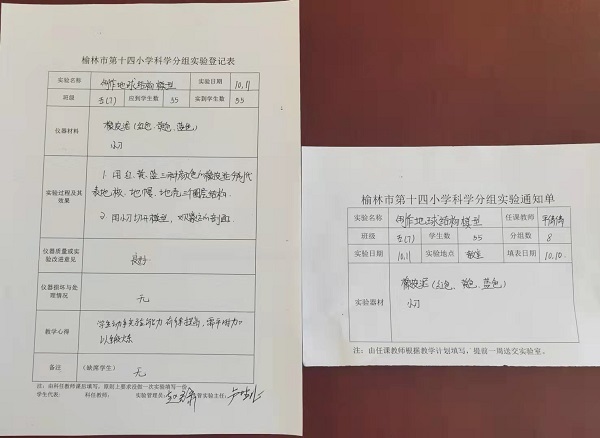 榆林市第十四小学科学分组实验登记表
实验名称 制作地球结构模型 实验日期 10.11
班级 五(7) 应到学生数 55 实到学生数 55
仪器材料
橡皮泥(红色、黄色、蓝色)
小刀
实验过程及其
效果
1. 用红、黄、蓝三种颜色的橡皮泥分别代
表地核、地幔、地壳三个圈层结构.
2. 用小刀切开模型,观察它的剖面.
仪器质量或实
验改进意见
良好
仪器损坏与处
理情况
无
教学心得
学生动手实验能力有待提高,需平时加
以锻炼
备注 (缺席学生) 无
注:由科任教师课后填写,原则上要求没做一次实验填写一份
学生代表: 科任教师: 实验管理员: 实验主任:
榆林市第十四小学科学分组实验通知单
实验名称 制作地球结构模型 任课教师
班级 五(7) 学生数 55 分组数 8
实验日期 10.11 实验地点 教室 填表日期 10.10.
实验器材
橡皮泥(红色、黄色、蓝色)
小刀
注:由任课教师根据教学计划填写,提前一周送交实验室。